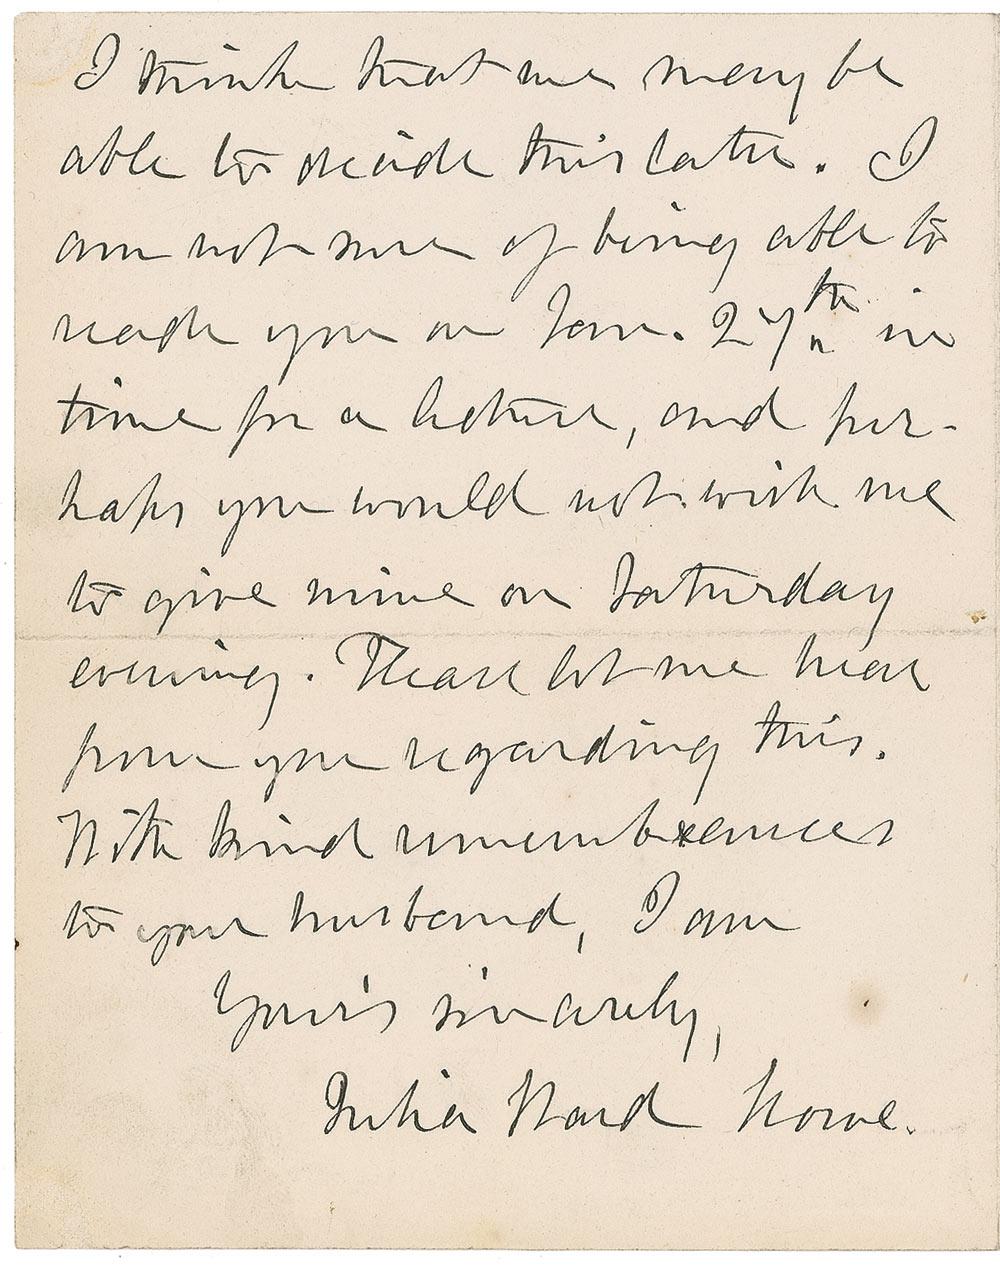 I think that we may be
able to decide this later. I
am not sure of being able to
reach you on Jan. 27th in
time for a lecture, and per-
haps you would not wish me
to give mine on Saturday
evening. Please let me hear
from you regarding this.
With kind remembrances
to your husband, I am
Your's sincerely,
Julia Ward Howe.